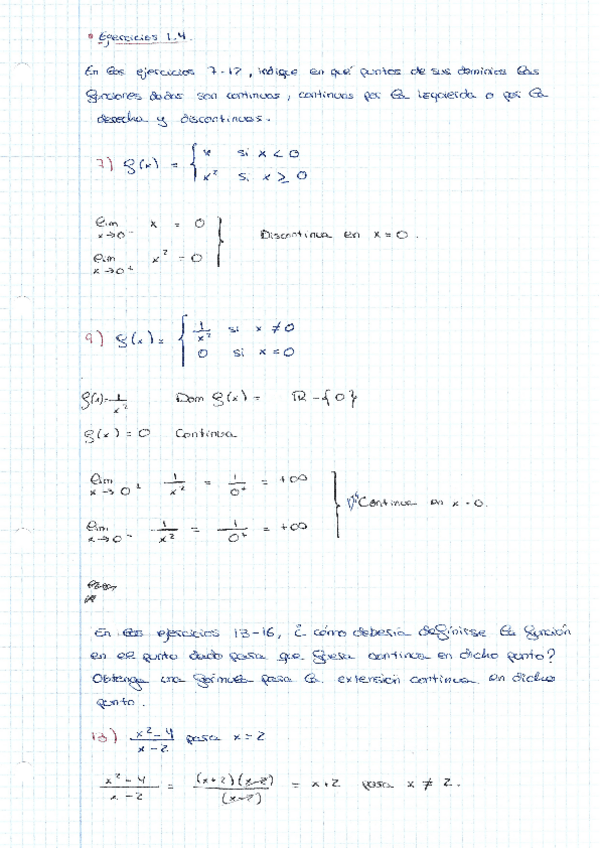 • Ejercicios 1.4.
En los ejercicios 7-12, indique en qué puntos de sus dominios las
funciones dadas son continuas, continuas por la izquierda o por la
derecha y discontinuas.
7) f(x) = { x si x < 0
x² si x ≥ 0
lim x→0⁻ x = 0
lim x→0⁺ x² = 0 } Discontinua en x = 0.
9) f(x) = { 1/x² si x ≠ 0
0 si x = 0
f(x) = 1/x² Dom f(x) = ℝ - {0}
f(x) = 0 Continua
lim x→0⁺ 1/x² = 1/0⁺ = +∞
lim x→0⁻ 1/x² = 1/0⁺ = +∞ } Continua en x = 0.
En los ejercicios 13-16, ¿cómo debería definirse la función
en el punto dado para que fuera continua en dicho punto?
Obtenga una fórmula para la extensión continua en dicho
punto.
13) x²-4/x-2 para x = 2
x²-4/x-2 = (x+2)(x-2)/(x-2) = x+2 para x ≠ 2.